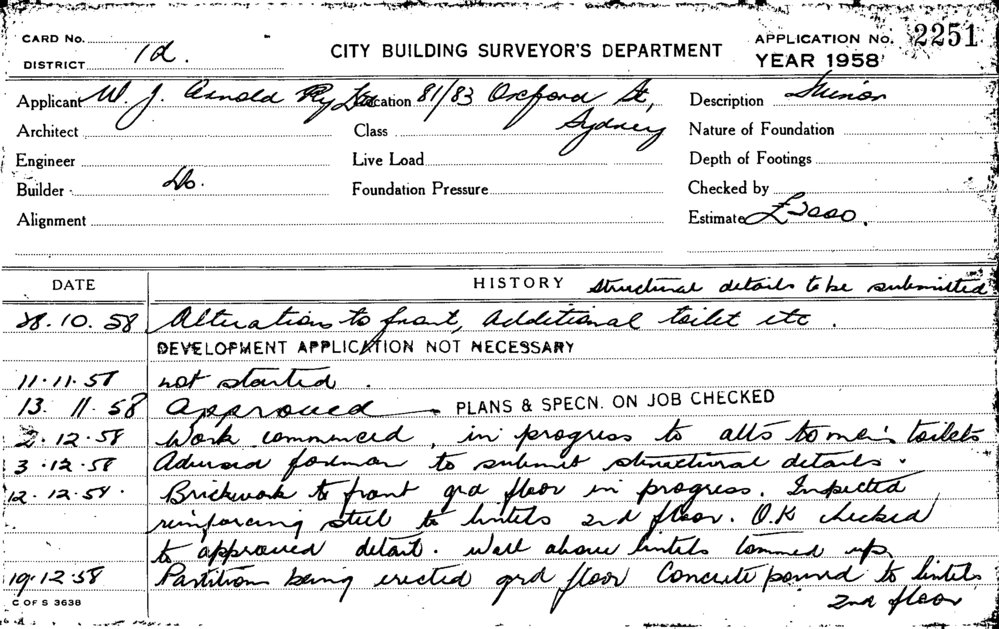 CARD No.
DISTRICT 1d.
CITY BUILDING SURVEYOR'S DEPARTMENT
APPLICATION No. 2251
YEAR 1958
Applicant W. J. Arnold Pty Ltd Location 81/83 Oxford St, Sydney
Description Minor
Architect
Class
Nature of Foundation
Engineer
Live Load
Depth of Footings
Builder Do.
Foundation Pressure
Checked by
Alignment
Estimate £2000.
DATE
HISTORY structural details to be submitted
28.10.58 Alterations to front, additional toilet etc.
DEVELOPMENT APPLICATION NOT NECESSARY
11.11.58 not started.
13.11.58 Approved PLANS & SPECN. ON JOB CHECKED
2.12.58 Work commenced, in progress to alts to men's toilets
3.12.58 Advised foreman to submit structural details.
12.12.58. Brickwork to front grd floor in progress. Inspected
reinforcing steel to lintels 2nd floor. O.K checked
to approved detail. Wall above lintels tommed up.
19.12.58 Partitions being erected grd floor Concrete poured to lintels
2nd floor
C OF S 3638